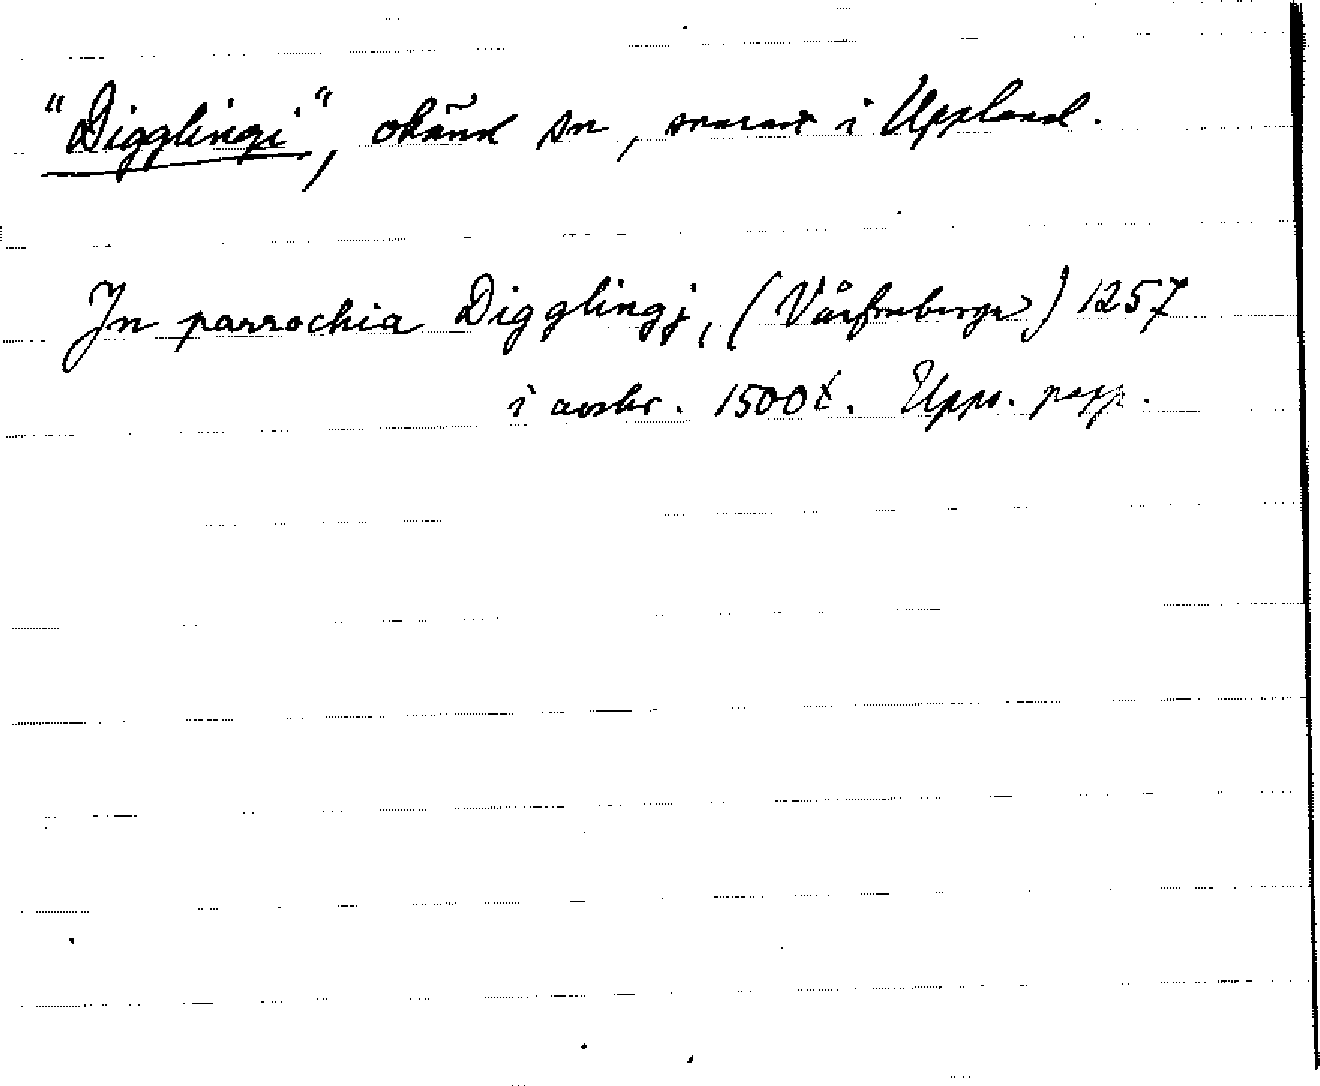 "Digglingi", okänd sn, snarast i Uppland.
In parrochia Digglingj, (Vårfruberga) 1257
i avskr. 1500t. Upps. papp.